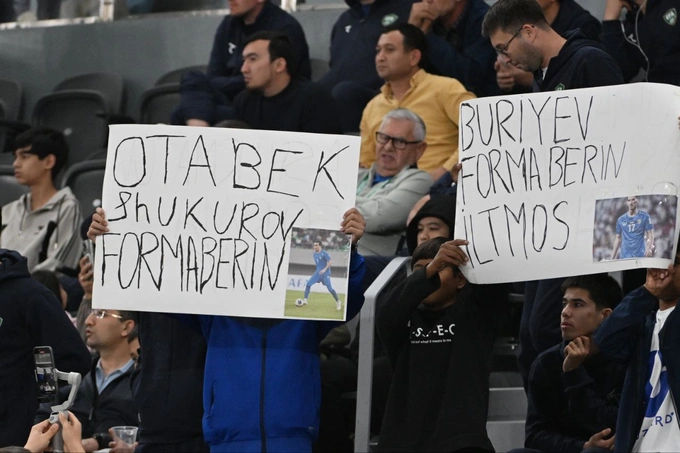 OTABEK
ShUKUROV
FORMABERIN
BURIYEV
FORMABERIN
ILTMOS
17